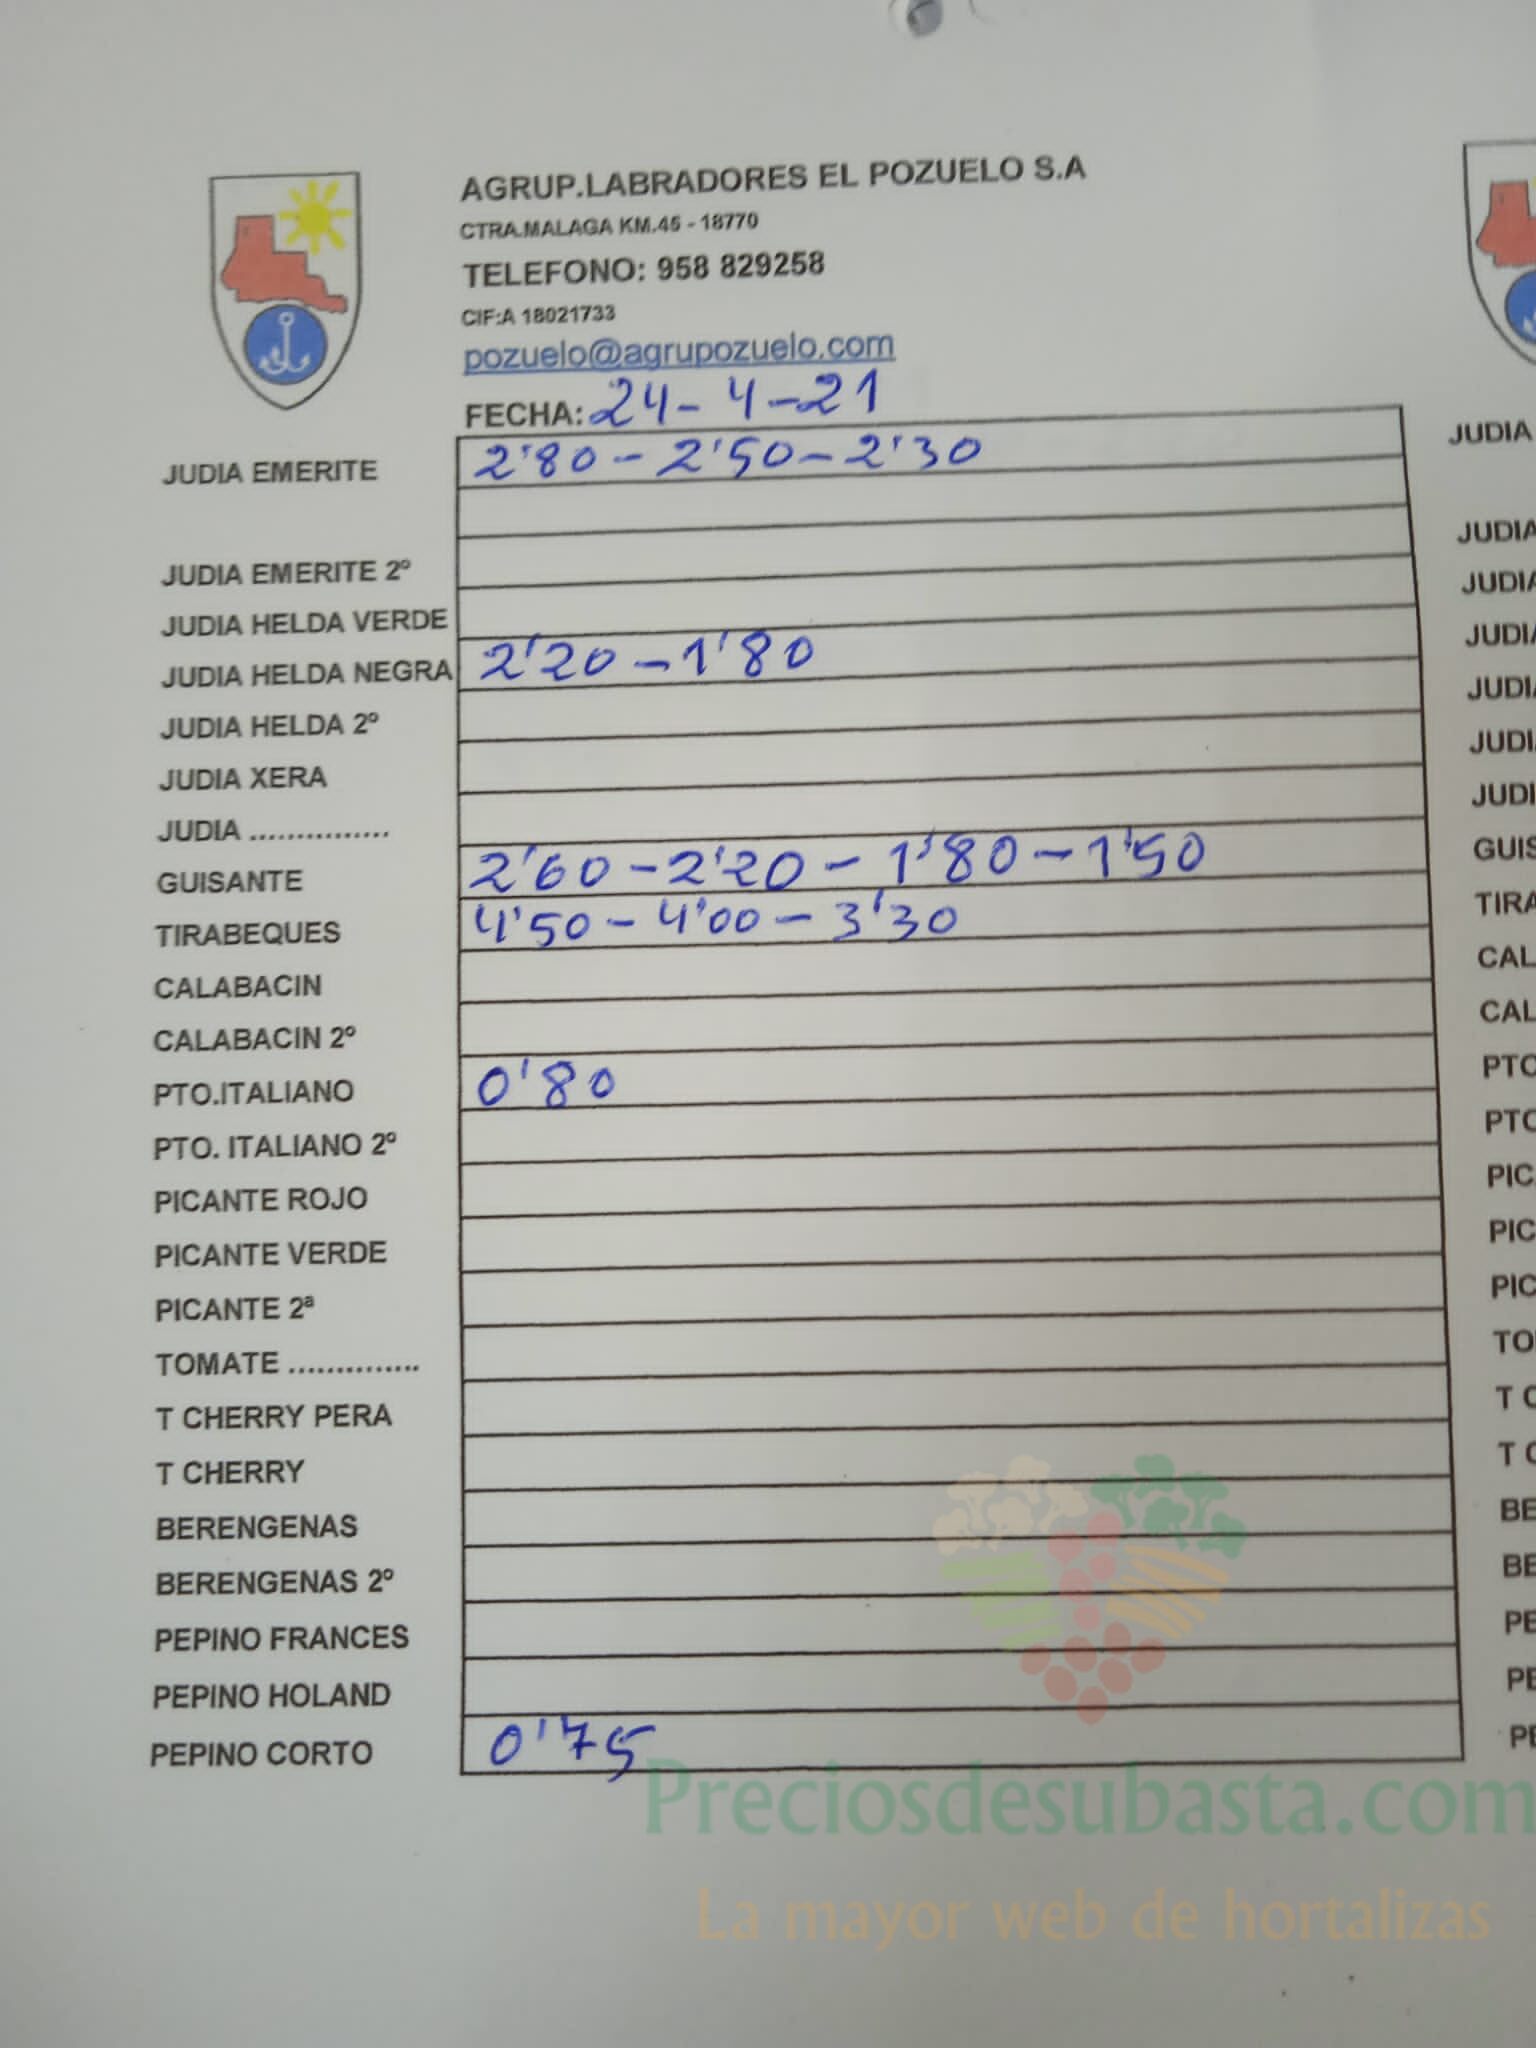 AGRUP.LABRADORES EL POZUELO S.A
CTRA.MALAGA KM.45 - 18770
TELEFONO: 958 829258
CIF:A 18021733
pozuelo@agrupozuelo.com
FECHA: 24-4-21
JUDIA EMERITE 2'80 - 2'50 - 2'30
JUDIA EMERITE 2º
JUDIA HELDA VERDE
JUDIA HELDA NEGRA 2'20 - 1'80
JUDIA HELDA 2º
JUDIA XERA
JUDIA ...............
GUISANTE 2'60 - 2'20 - 1'80 - 1'50
TIRABEQUES 4'50 - 4'00 - 3'30
CALABACIN
CALABACIN 2º
PTO.ITALIANO 0'80
PTO. ITALIANO 2º
PICANTE ROJO
PICANTE VERDE
PICANTE 2ª
TOMATE ..............
T CHERRY PERA
T CHERRY
BERENGENAS
BERENGENAS 2º
PEPINO FRANCES
PEPINO HOLAND
PEPINO CORTO 0'75
JUDIA
JUDIA
JUDIA
JUDIA
JUDIA
JUDI
JUDI
GUIS
TIRA
CAL
CAL
PTO
PTO
PIC
PIC
PIC
TO
T C
T C
BE
BE
PE
PE
PE
Preciosdesubasta.com
La mayor web de hortalizas